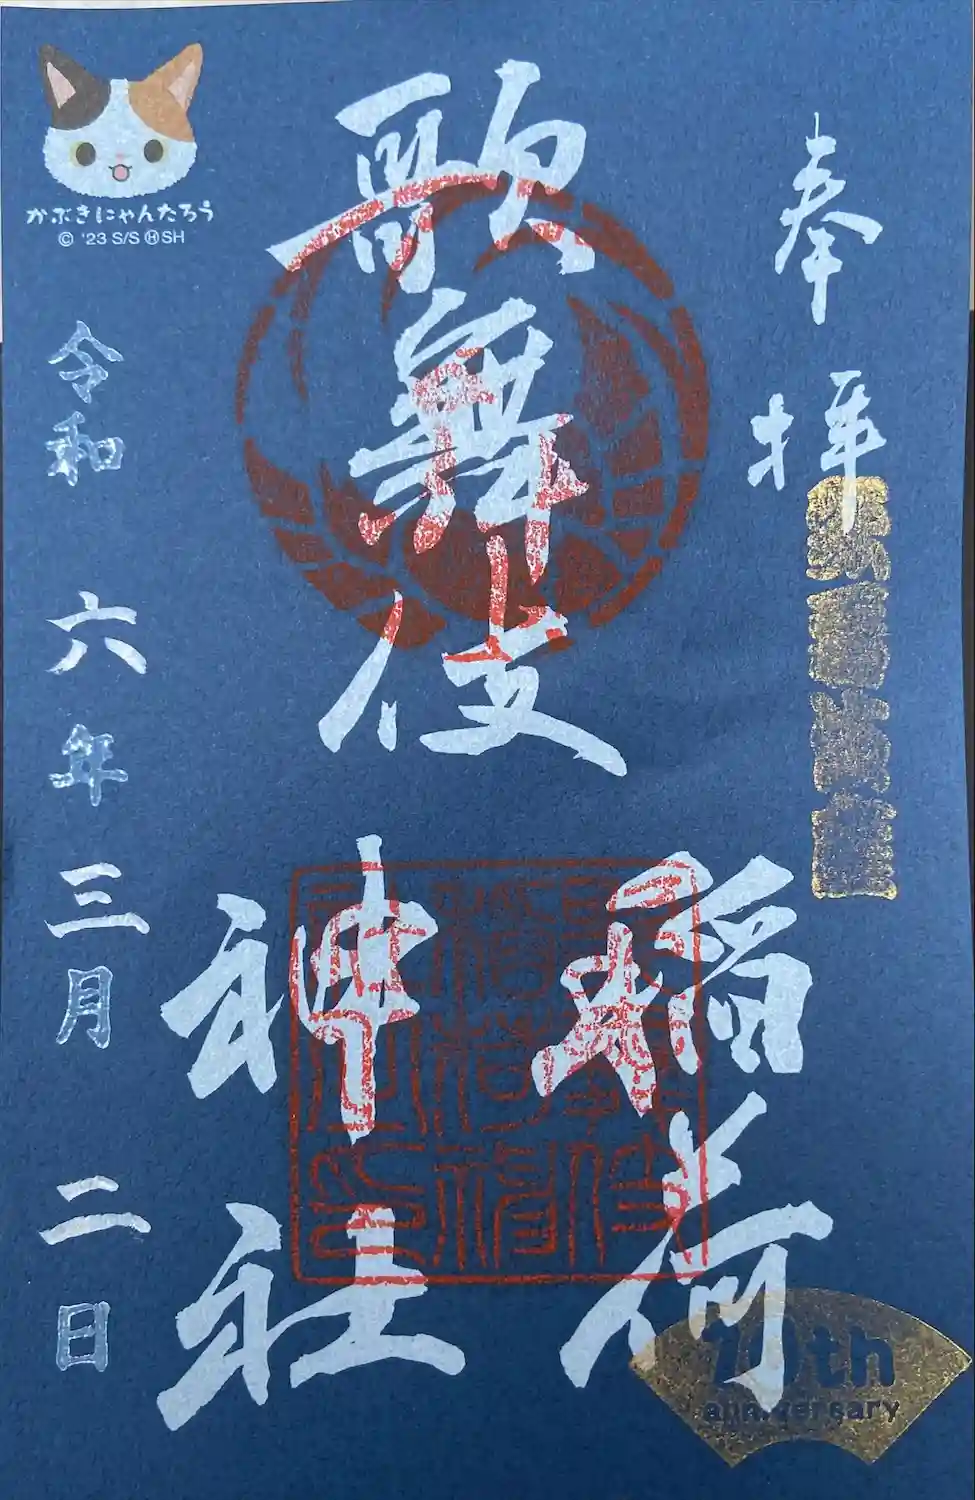 奉拝
歌舞伎
稲荷
神社
令和六年三月二日
かぶきにゃんたろう
© '23 S/S Ⓗ SH
10th
anniversary